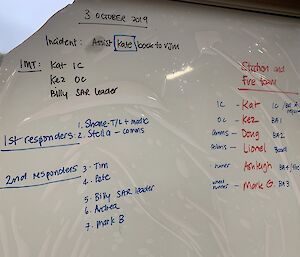 3 OCTOBER 2019
Incident: Assist Kate back to VJM
IMT: Kat IC
Kez OC
Billy SAR leader
1st responders:
1. Shane - T/L + medic
2. Stella - comms
2nd responders
3 - Tim
4. Pete
5. Billy SAR leader
6. Aethea
7. Mark B
Station and
Fire team
IC - Kat IC
OC - Kez BA1
comms - Doug BA2
comms - Lionel Board
runner Ashleigh BA4
- Mark G. BA3